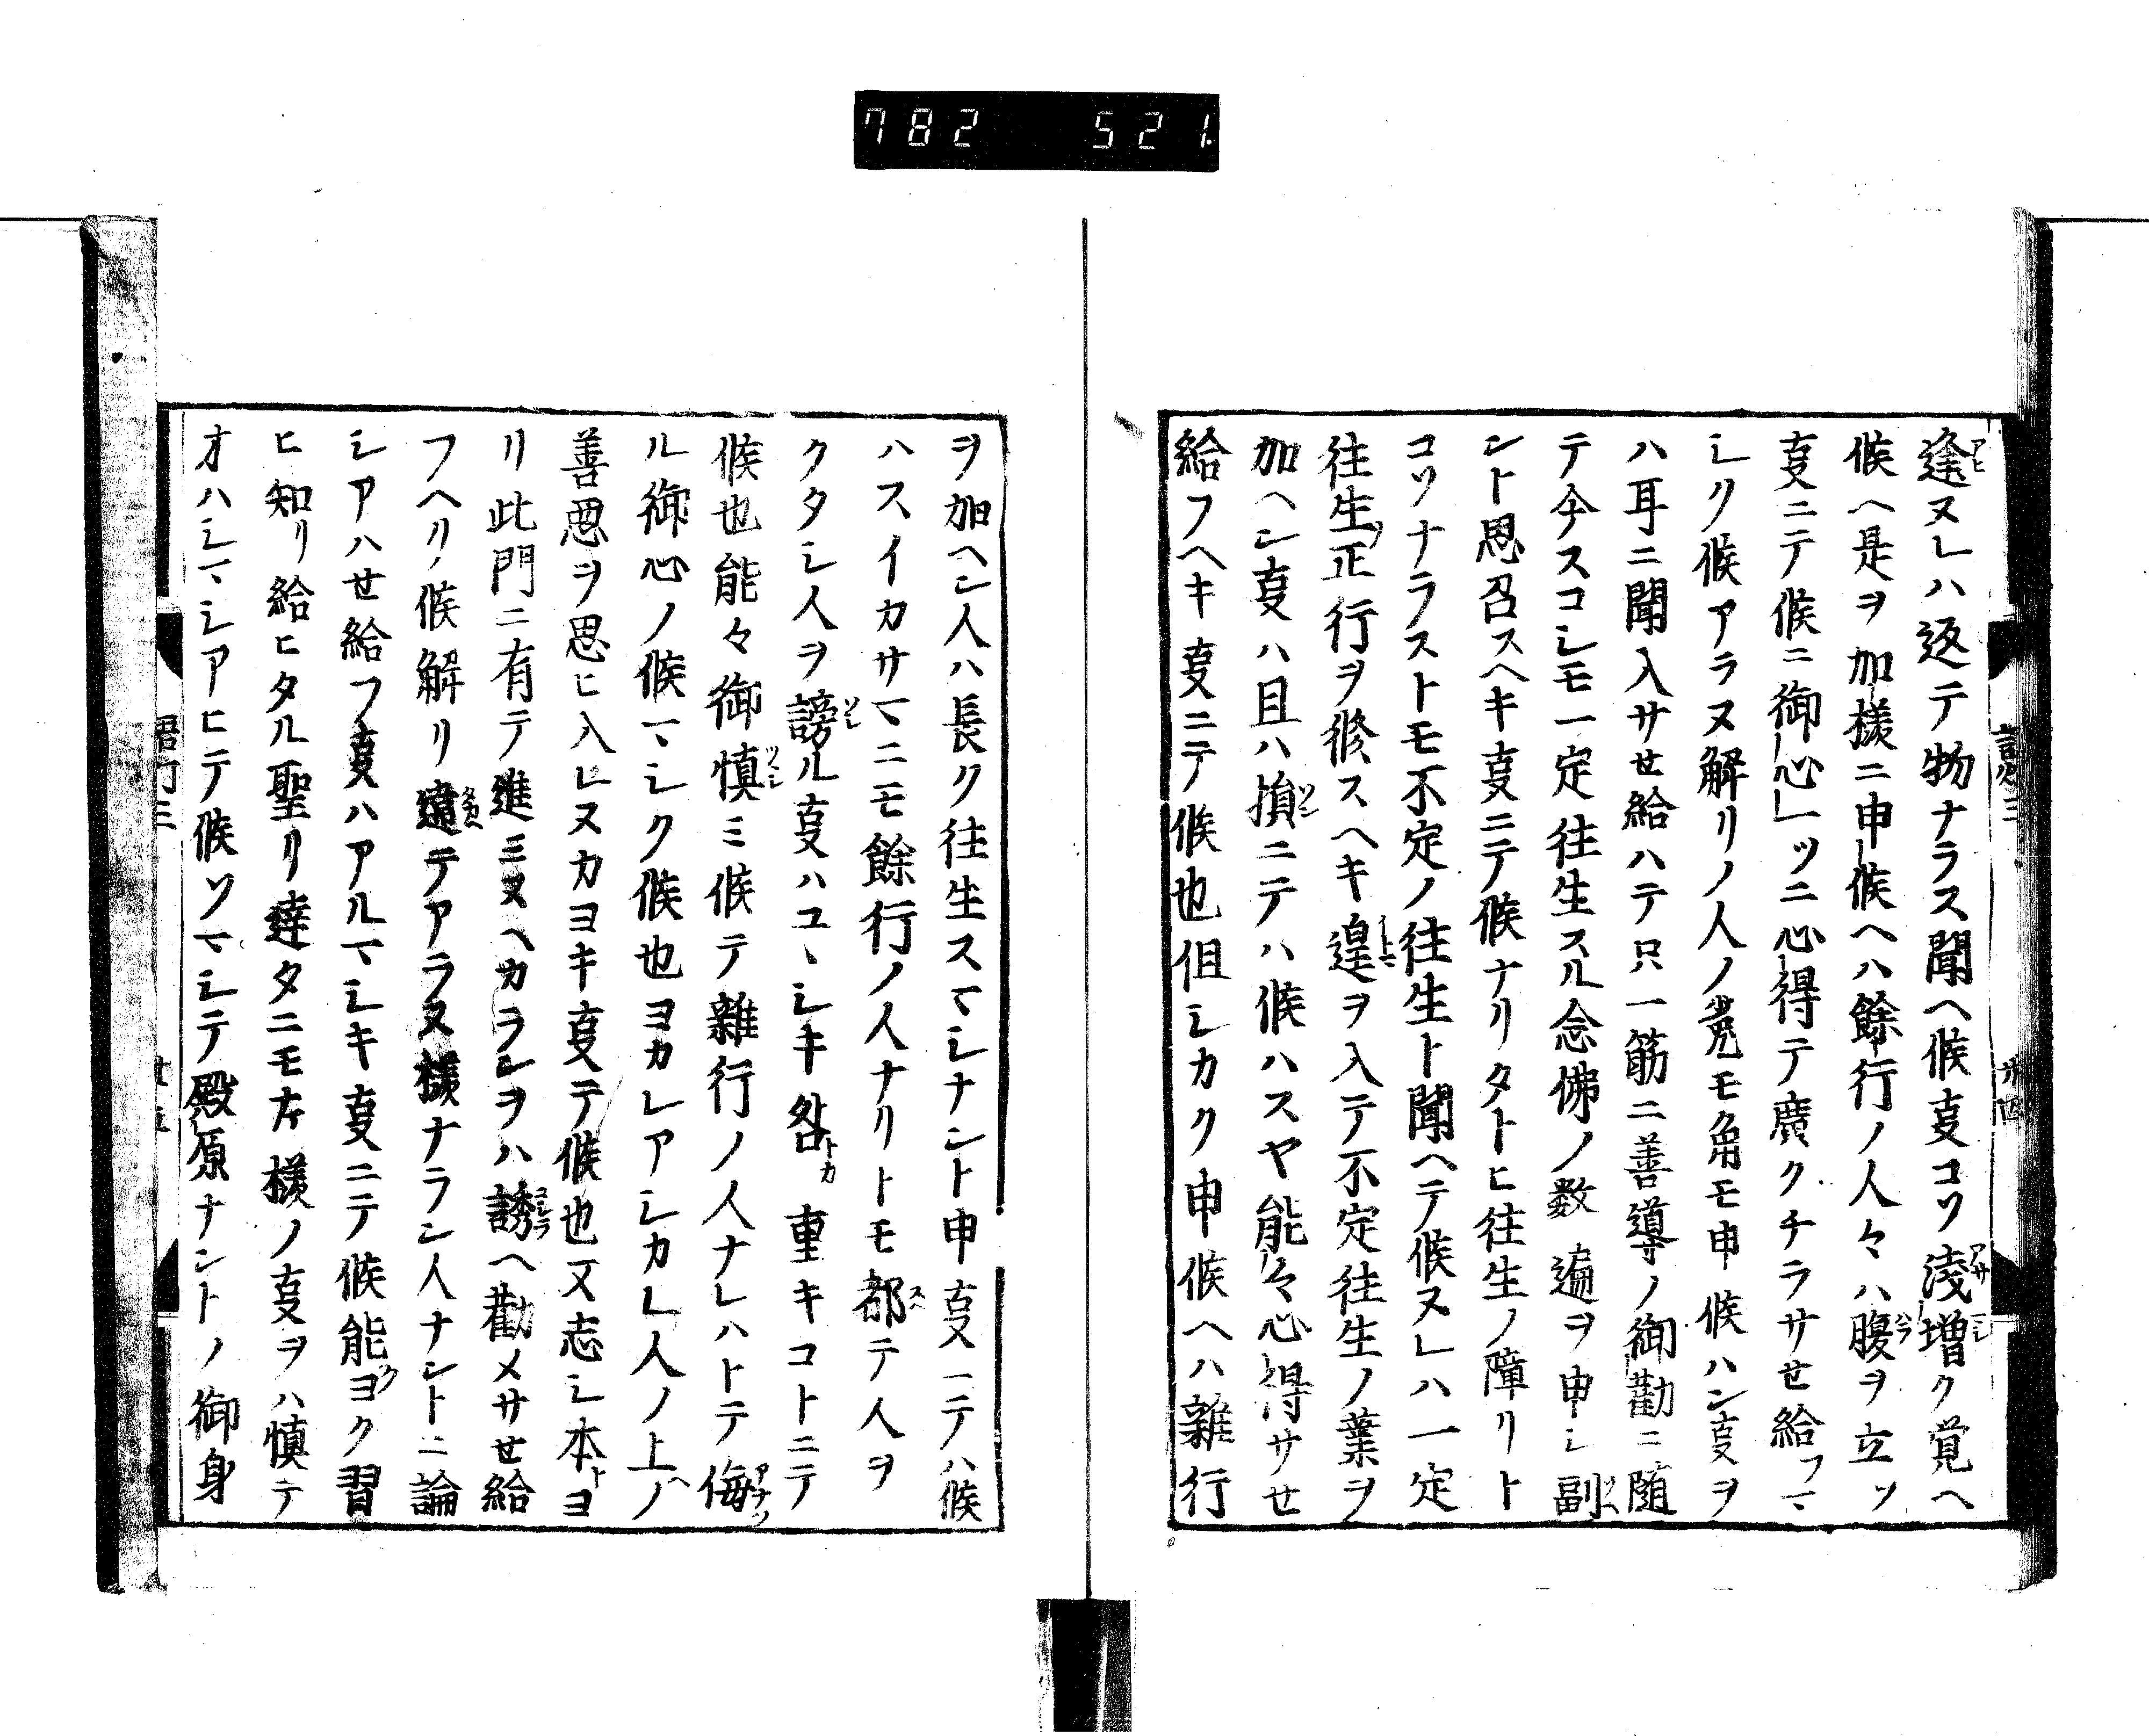 782 521
逢ヌレハ返テ物ナラス聞ヘ候叓コソ淺増ク覚ヘ
候ヘ是ヲ加様ニ申候ヘハ餘行ノ人々ハ腹ヲ立ツ
叓ニテ候ニ御心一ツニ心得テ廣クチラサせ給フマ
シク候アラヌ解リノ人ノ兎モ角モ申候ハン叓ヲ
ハ耳ニ聞入サせ給ハテ只一筋ニ善導ノ御勸ニ随
テ今スコシモ一定往生スル念佛ノ数遍ヲ申シ副
ント思召スヘキ叓ニテ候ナリタトヒ往生ノ障リト
コソナラストモ不定ノ往生ト聞ヘテ候ヌレハ一定
往生ノ正行ヲ修スヘキ遑ヲ入テ不定往生ノ業ヲ
加ヘン叓ハ且ハ損ニテハ候ハスヤ能々心得サせ
給フヘキ叓ニテ候也但シカク申候ヘハ雜行
ヲ加ヘン人ハ長ク往生スマシナント申叓ニテハ候
ハスイカサマニモ餘行ノ人ナリトモ都テ人ヲ
クタシ人ヲ謗ル叓ハユヽシキ咎重キコトニテ
候也能々御慎ミ候テ雜行ノ人ナレハトテ侮
ル御心ノ候マシク候也ヨカレアシカレ人ノ上ノ
善悪ヲ思ヒ入レヌカヨキ叓テ候也又志シ本ヨ
リ此門ニ有テ進ミヌヘカラシヲハ誘ヘ勸メサせ給
フヘク候解リ違テアラヌ様ナラン人ナントニ論
シアハせ給フ叓ハアルマシキ叓ニテ候能ヨク習
ヒ知リ給ヒタル聖リ達タニモ左様ノ叓ヲハ慎テ
オハシマシアヒテ候ソマシテ殿原ナントノ御身